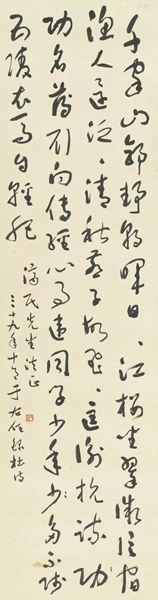 千家山郭靜朝暉日、江樓坐翠微信宿
漁人還泛、清秋燕子故飛、匡衡抗疏
功名薄劉向傳經心事違同學少年多不賤
五陵衣馬自輕肥
民先生法正
三十九年十月于右任錄杜詩